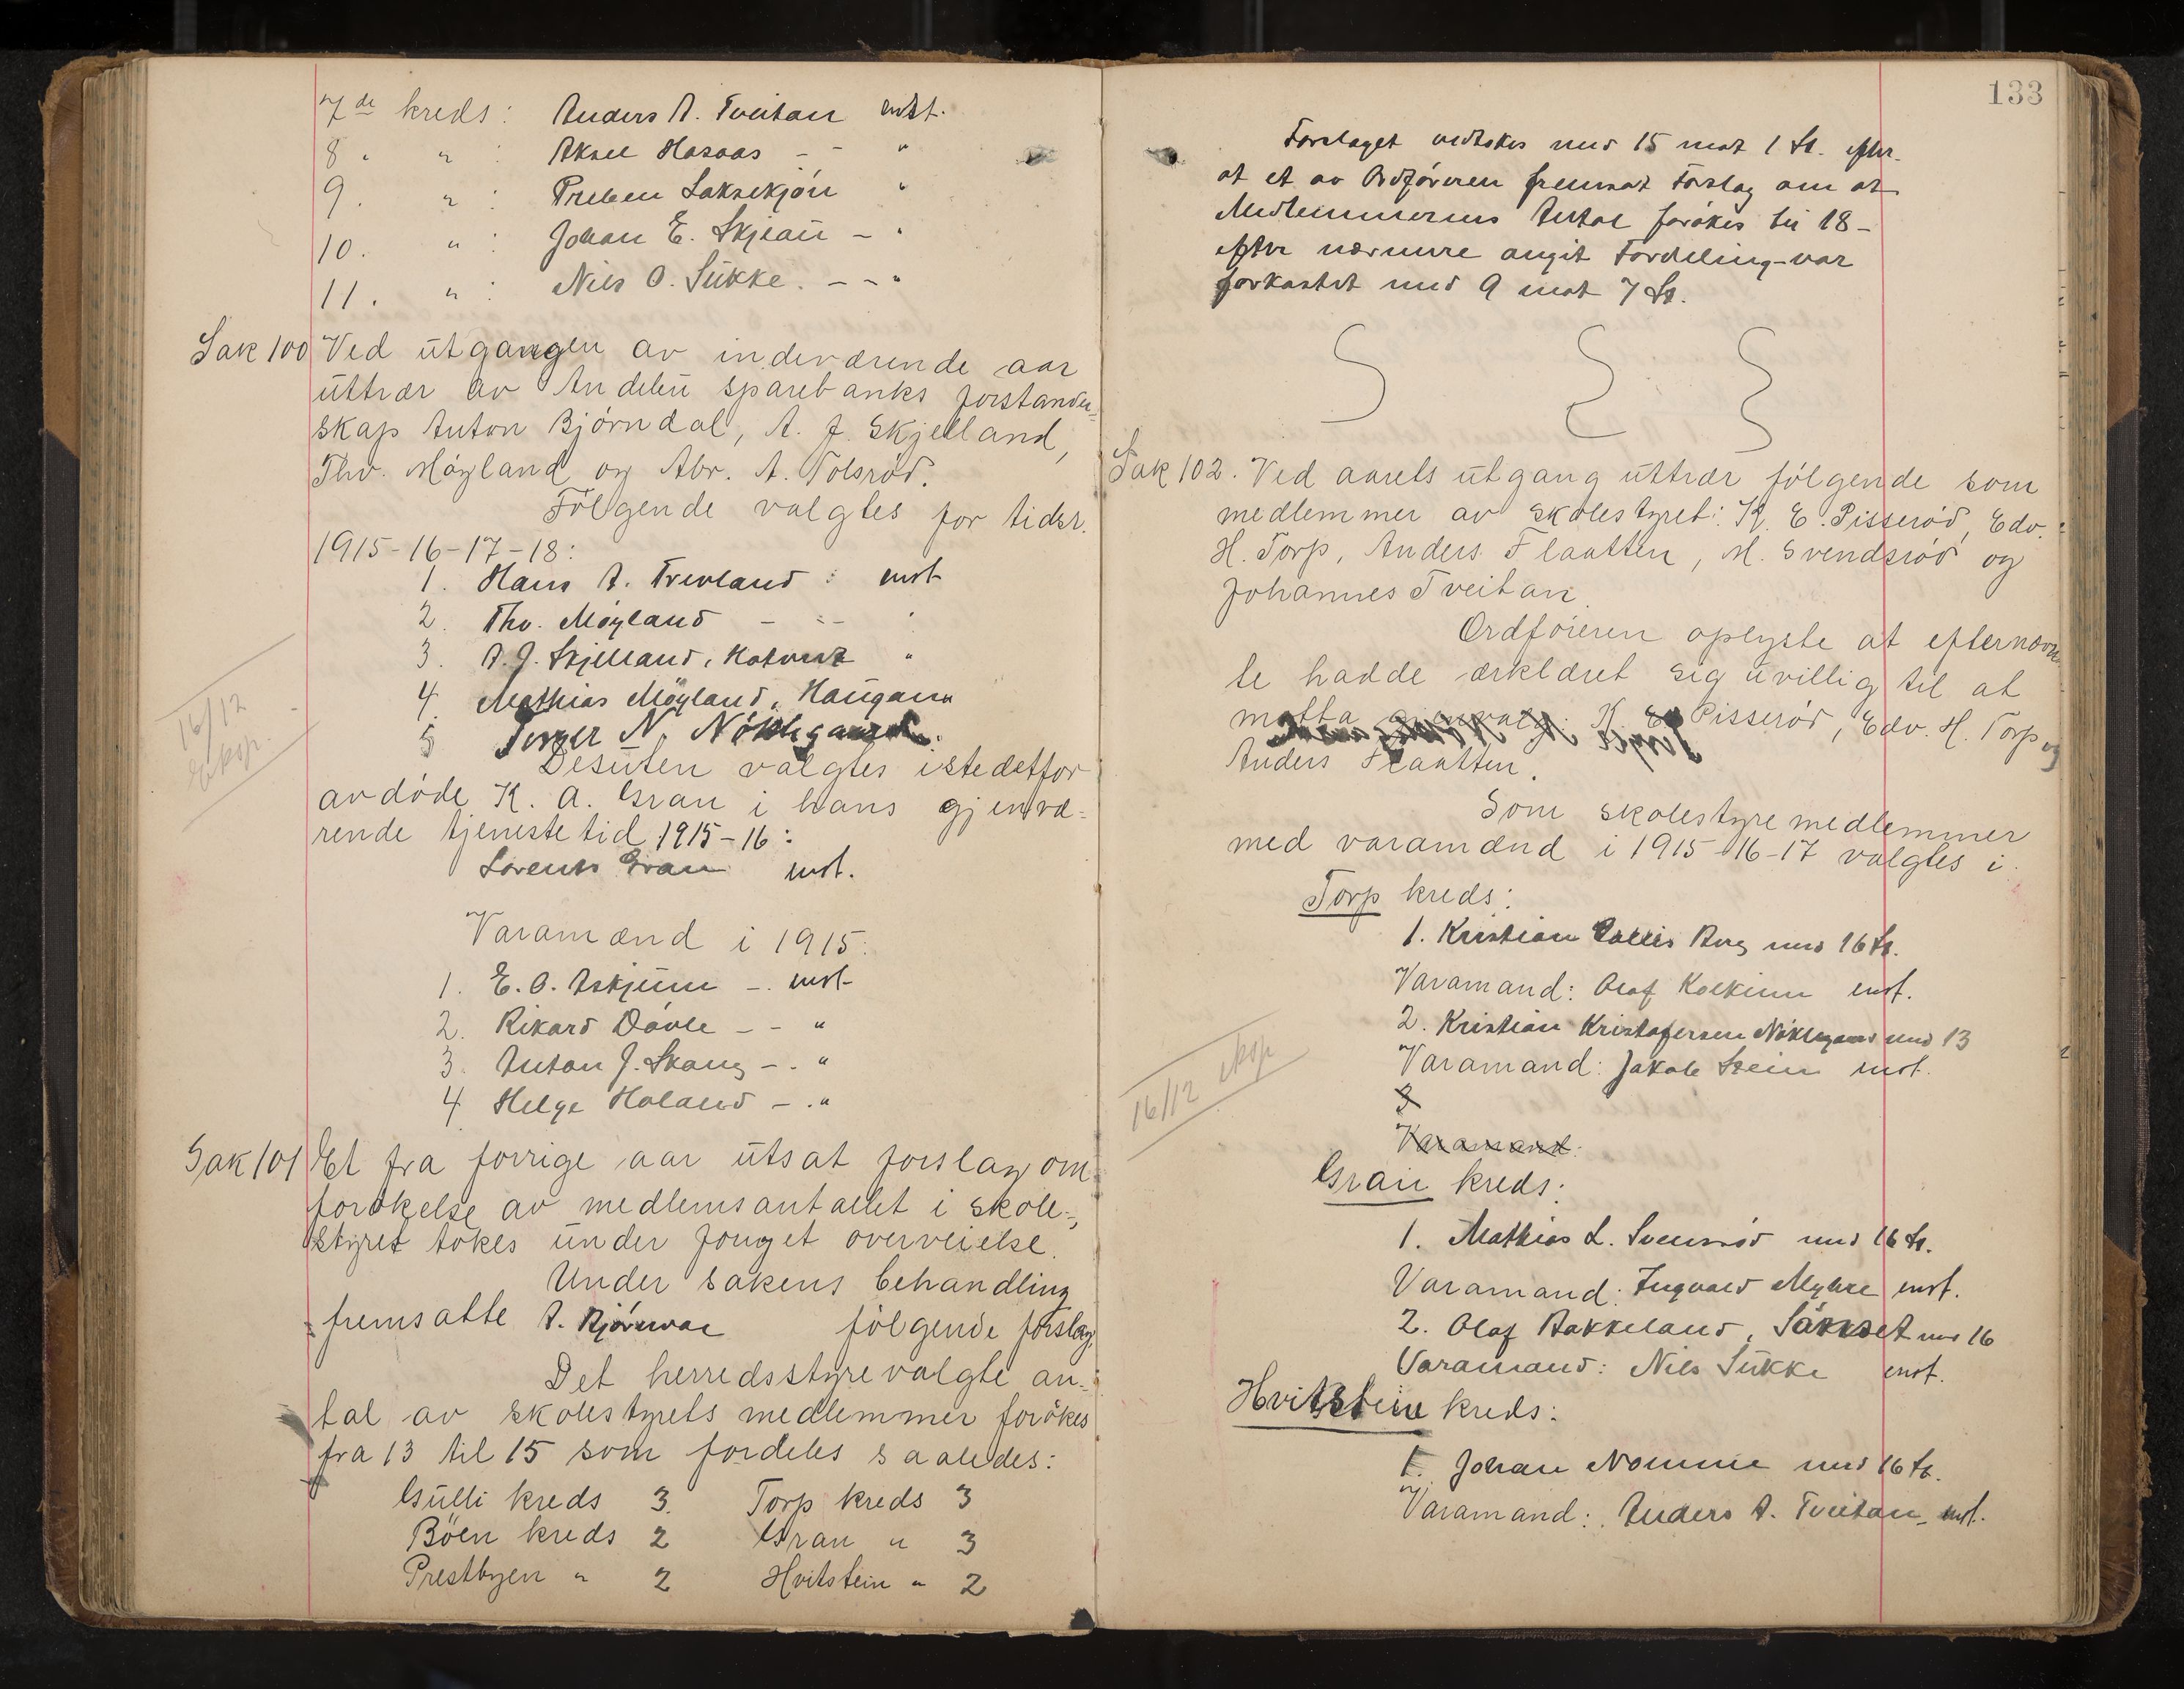 7de kreds: Anders A. Tveitan enst.
8. " : Aksel Hasaas - - "
9. " : Preben Laksekjøn "
10. " : Johan E. Skjeau - "
11. " : Nils O. Sukke. - - "
Sak 100 Ved utgangen av indeværende aar
uttrær av Andebu sparebanks forstander=
skap Anton Bjørndal, A. J. Skjelland,
Thv. Møyland og Abr. A. Tolsrød.
Følgende valgtes for tider.
1915-16-17-18:
1. Hans A. Trevland : enst
2. Thv. Møyland - -- "
3. A. J. Skjelland, "
4. Mathias Møyland, Haugan "
5 Torger N. Nøklegaard.
Desuten valgtes istedetfor
avdøde K. A. Gran i hans gjenvæ=
rende tjenestetid 1915-16:
Lorents Gran enst.
Varamænd i 1915:
1. E. O. Askjum -. enst-
2. Rikard Døvle - - "
3. Anton J. Skaug -. "
4 Helge Holand -. "
16/12
Eksp.
Sak 101 Et fra forrige aar utsat forslag om
forøkelse av medlemsantallet i skole-
styret tokes under fornyet overveielse.
Under sakens behandling
fremsatte A. Bjørndal følgende forslag,
Det herredsstyrevalgte an-
tal av skolestyrets medlemmer forøkes
fra 13 til 15 som fordeles saaledes:
Gulli kreds 3. Torp kreds 3
Böen kreds 2 Gran " 3
Prestbyen " 2 Hvitstein " 2
133
Forslaget vedtokes med 15 mot 1 St. efter
at et av Ordføreren fremsat Forslag om at
Medlemmernes Antal forøkes til 18 -
efter nærmere angit Fordeling - var
forkastet med 9 mot 7 St.
Sak 102. Ved aarets utgang uttrær følgende som
medlemmer av skolestyret: K. E. Pisserød, Edv.
H. Torp, Anders Flaatten, M. Svendsrød og
Johannes Tveitan.
Ordføreren oplyste at efternævn
te hadde erklæret sig uvillig til at
motta gjenvalg: K. E. Pisserød, Edv. H. Torp og
Anders Flaatten.
Som skolestyremedlemmer
med varamænd i 1915-16-17 valgtes i
Torp kreds:
1. Kristian Berg med 16 St.
Varamand: Olaf Kolkinn enst.
2. Kristian Kristofersen Nøklegaard med 13
Varamand: Jakob Stein enst.
3
Varamand:
16/12 eksp
Gran kreds:
1. Mathias L. Svensrød med 16 St.
Varamand: Ingvald Myhre enst.
2. Olaf Bakkeland, med 16
Varamand: Nils Sukke enst.
Hvitstein kreds:
1. Johan Nomme med 16 St.
Varamand: Anders A. Tveitan - enst.